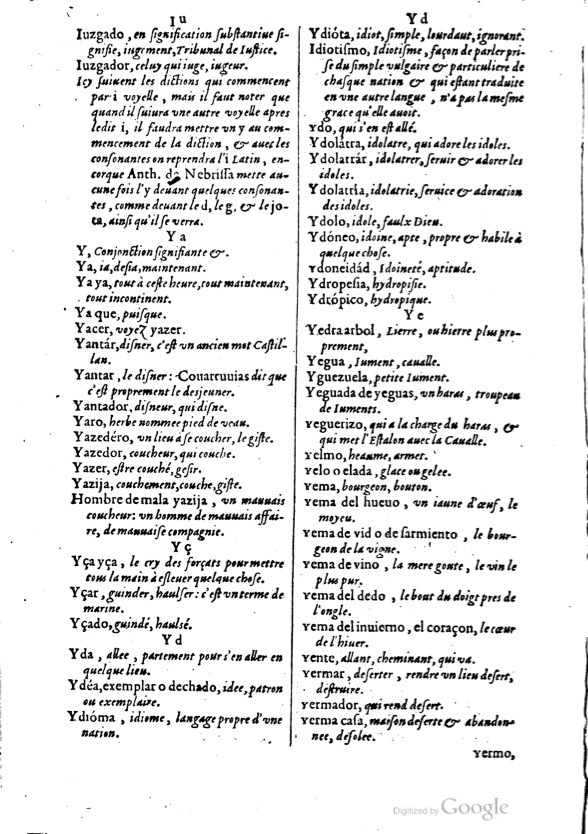 Iu
Iuzgado, en signification substantiue si-
gnifie, iugement, Tribunal de Iustice.
Iuzgador, celuy qui iuge, iugeur.
Icy suiuent les dictions qui commencent
par i voyelle, mais il faut noter que
quand il suiura vne autre voyelle apres
ledit i, il faudra mettre vn y au com-
mencement de la diction, & auec les
consonantes on reprendra l'i Latin, en-
corque Anth. de Nebrissa mette au-
cune fois l'y deuant quelques consonan-
tes, comme deuant le d, le g, & le jo-
ta, ainsi qu'il se verra.
Ya
Y, Conjonction signifiante &.
Ya, ia, desia, maintenant.
Ya ya, tout à ceste heure, tout maintenant,
tout incontinent.
Ya que, puisque.
Yacer, voyez yazer.
Yantár, disner, c'est vn ancien mot Castil-
lan.
Yantar, le disner: Couarruuias dit que
c'est proprement le desjeuner.
Yantador, disneur, qui disne.
Yaro, herbe nommee pied de veau.
Yazedéro, vn lieu à se coucher, le giste.
Yazedor, coucheur, qui couche.
Yazer, estre couché, gesir.
Yazija, couchement, couche, giste.
Hombre de mala yazija, vn mauuais
coucheur: vn homme de mauuais affai-
re, de mauuaise compagnie.
Yç
Yça yça, le cry des forçats pour mettre
tous la main à esleuer quelque chose.
Yçar, guinder, haulser: c'est vn terme de
marine.
Yçado, guindé, haulsé.
Yd
Yda, allee, partement pour s'en aller en
quelque lieu.
Ydéa, exemplar o dechado, idee, patron
ou exemplaire.
Ydióma, idiome, langage propre d'vne
nation.
Yd
Ydióta, idiot, simple, lourdaut, ignorant.
Idiotismo, Idiotisme, façon de parler pri-
se du simple vulgaire & particuliere de
chasque nation & qui estant traduite
en vne autre langue, n'a pas la mesme
grace qu'elle auoit.
Ydo, qui s'en est allé.
Ydolátra, idolatre, qui adore les idoles.
Ydolatrár, idolatrer, seruir & adorer les
idoles.
Ydolatría, idolatrie, seruice & adoration
des idoles.
Ydolo, idole, faulx Dieu.
Ydóneo, idoine, apte, propre & habile à
quelque chose.
Ydoneidád, Idoineté, aptitude.
Ydropesia, hydropisie.
Ydrópico, hydropique.
Ye
Yedra arbol, Lierre, ou hierre plus pro-
prement,
Yegua, Iument, cauale.
Yguezuela, petite Iument.
Yeguada de yeguas, vn haras, troupeau
de Iuments.
Yeguerizo, qui a la charge du haras, &
qui met l'Estalon auec la Cauale.
Yelmo, heaume, armet.
Yelo o elada, glace ou gelee.
Yema, bourgeon, bouton.
Yema del hueuo, vn iaune d'œuf, le
moyeu.
Yema de vid o de sarmiento, le bour-
geon de la vigne.
Yema de vino, la mere goute, le vin le
plus pur.
Yema del dedo, le bout du doigt pres de
l'ongle.
Yema del inuierno, el coraçon, le cœur
de l'hiuer.
Yente, allant, cheminant, qui va.
Yermar, deserter, rendre vn lieu desert,
destruire.
Yermador, qui rend desert.
Yerma casa, maison deserte & abandon-
nee, desolee.
Yermo,
Digitized by Google